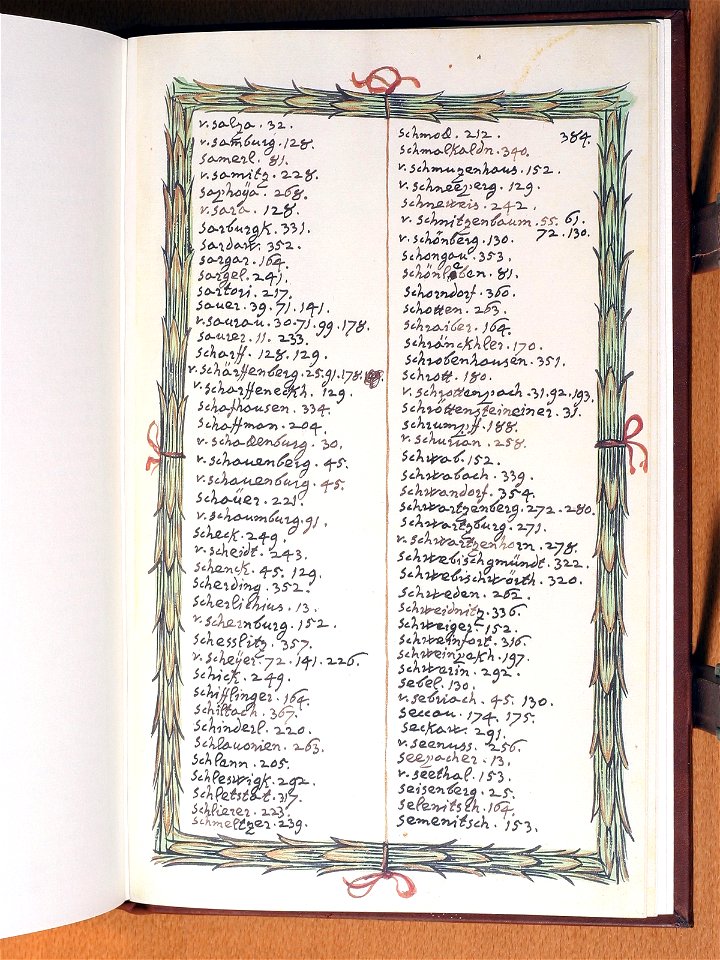 v. salza. 32.
v. samburg. 128.
samerl. 81.
v. samitz. 228.
saphoÿa. 268.
v. sara. 128.
sarburgk. 331.
sardaw. 352.
sargar. 164.
sargel. 241.
sartori. 217.
sauer. 39. 71. 141.
v. saurau. 30. 71. 99. 178.
saurer. 11. 233.
scharff. 128. 129.
v. schärffenberg. 25. 91. 178.
v. scharffeneckh. 129.
schafhausen. 334.
schaffman. 204.
v. schadenburg. 30.
v. schauenberg. 45.
v. schauenburg. 45.
schaüer. 221.
v. schaumburg. 91.
scheck. 249.
v. scheidt. 243.
schenck. 45. 129.
scherding. 352.
scherlichius. 13.
v. schernburg. 152.
schesslitz. 357.
v. scheÿer. 72. 141. 226.
schick. 249.
schifflinger. 164.
schiltach. 367.
schinderl. 220.
schlauonien. 263.
schlann. 205.
schleswigk. 292.
schletstat. 317.
schlierer. 223.
schmeltzer. 239.
384.
schmod. 212.
schmalkaldn. 340.
v. schmutzenhaus. 152.
v. schneeperg. 129.
schneweis. 242.
v. schnitzenbaum. 55. 61.
72. 130.
v. schönberg. 130.
schongau. 353.
schönleben. 81.
schorndorf. 360.
schotten. 263.
schraiber. 164.
schränckhler. 170.
schrobenhausen. 351.
schrott. 180.
v. schrottenpach. 31. 92. 193.
schröttensteineiner. 31.
schrumpff. 188.
v. schurian. 258.
schwab. 152.
schwabach. 339.
schwandorf. 354.
schwartzenberg. 272. 280.
schwartzburg. 271.
v. schwartzenhorn. 278.
schwebischgmündt. 322.
schwebischwörth. 320.
schweden. 262.
schweidnitz. 336.
schweiger. 152.
schweinfort. 316.
schweinpekh. 197.
schwerin. 292.
sebel. 130.
v. sebriach. 45. 130.
seccau. 174. 175.
seckaw. 291.
v. seenuss. 256.
seepacher. 13.
v. seethal. 153.
seisenberg. 25.
selenitsch. 164.
semenitsch. 153.